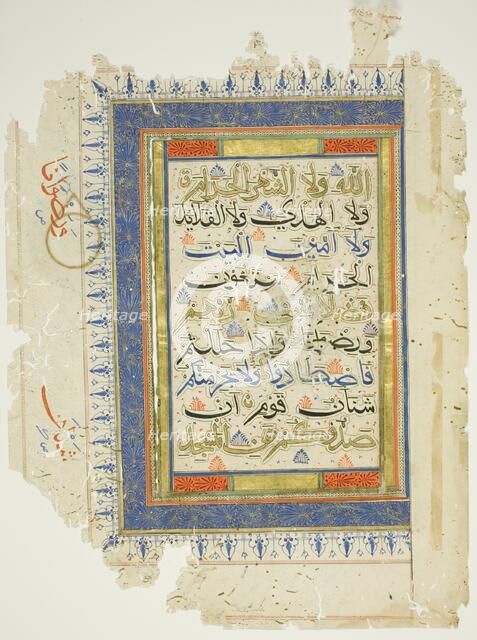 الله ولا الشهر الحرام
ولا الهدي ولا القلئد
ولا امين البيت
الحرام يبتغون
فضلا من ربهم
ورضوانا واذا حللتم
فاصطادوا ولا يجرمنكم
شنان قوم ان
صدوكم عن المسجد
ورضوانا
heritage